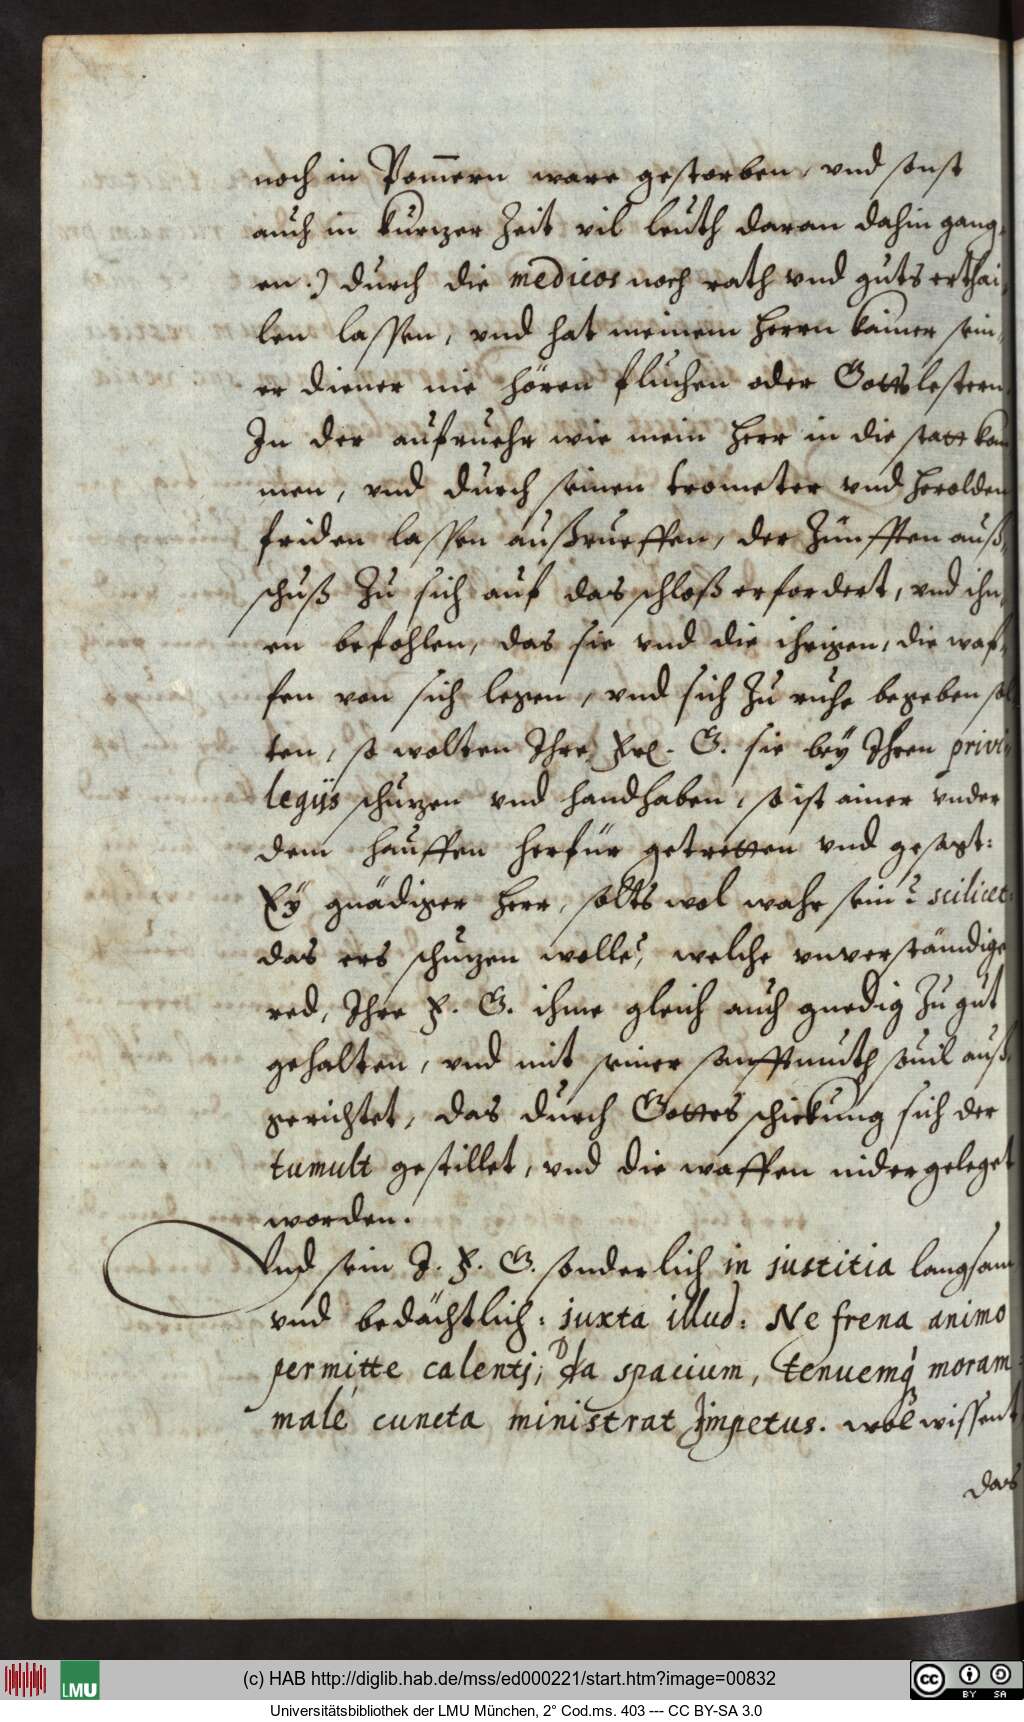 noch in Pom̅ern ware gestorben, vnd sonst
auch in kurzer Zeit vil leuth daran dahin gang,
en.) durch die medicos noch rath vnd guts erthai,
len lassen, vnd hat meinem herrn kainer sein,
er diener nie hören fluchen oder Gottslestern.
In der aufruehr wie mein herr in die statt kom
men, vnd durch seinen trometer vnd herolden
friden lassen außrueffen, der Zünfften auß,
schuß Zu sich auf das schloß erfordert, vnd ihn,
en befohlen, das sie vnd die ihrigen, die waf,
fen von sich legen, vnd sich Zu ruhe begeben sol
ten, so wolten Ihre Frl. G. sie bey Ihren privi
legijs schuzen vnd handhaben, so ist ainer vnder
dem hauffen herfür getretten vnd gesagt:
Ey gnädiger herr, solts wol wahr sein? scilicet:
das ers schuzen wolle, welche vnverständige
red, Ihre F. G. ihme gleich auch gnedig Zu gut
gehalten, vnd mit seiner sanfftmuth souil auß,
gerichtet, das durch Gottes schickung sich der
tumult gestillet, vnd die waffen nidergeleget
worden.
Vnd sein J. F. G. sonderlich in justitia langsam
vnd bedächtlich: juxta illud: Ne frena animo
permitte calentj, Da spacium, tenuemq́ moram:
malè cuncta ministrat Impetus. wol wissent
das
(c) HAB http://diglib.hab.de/mss/ed000221/start.htm?image=00832
LMU
CC BY SA
Universitätsbibliothek der LMU München, 2° Cod.ms. 403 --- CC BY-SA 3.0